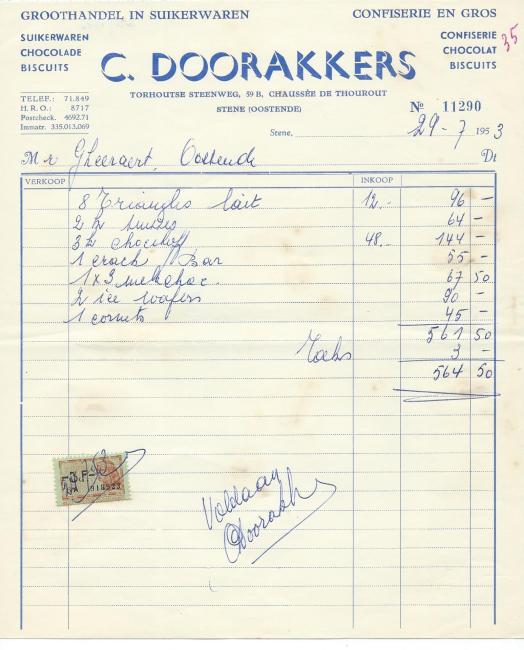 GROOTHANDEL IN SUIKERWAREN CONFISERIE EN GROS
SUIKERWAREN CONFISERIE 35
CHOCOLADE CHOCOLAT
BISCUITS C. DOORAKKERS BISCUITS
TORHOUTSE STEENWEG, 59 B, CHAUSSÉE DE THOUROUT
STENE (OOSTENDE)
TELEF.: 71.849
H. R. O.: 8717
Postcheck. 4692.71
Immatr. 335.013.069
№ 11290
Stene, 29-7 1953
Mr Gheeraert, Oostende Dt
VERKOOP INKOOP
8 Triangles lait 12.- 96 -
2 64 -
3 48.- 144 -
1 crach Bar 55 -
1 x 3 melkchoc. 67 50
2 ice wafers 90 -
1 cornets 45 -
561 50
3 -
564 50
Voldaan
Doorakkers